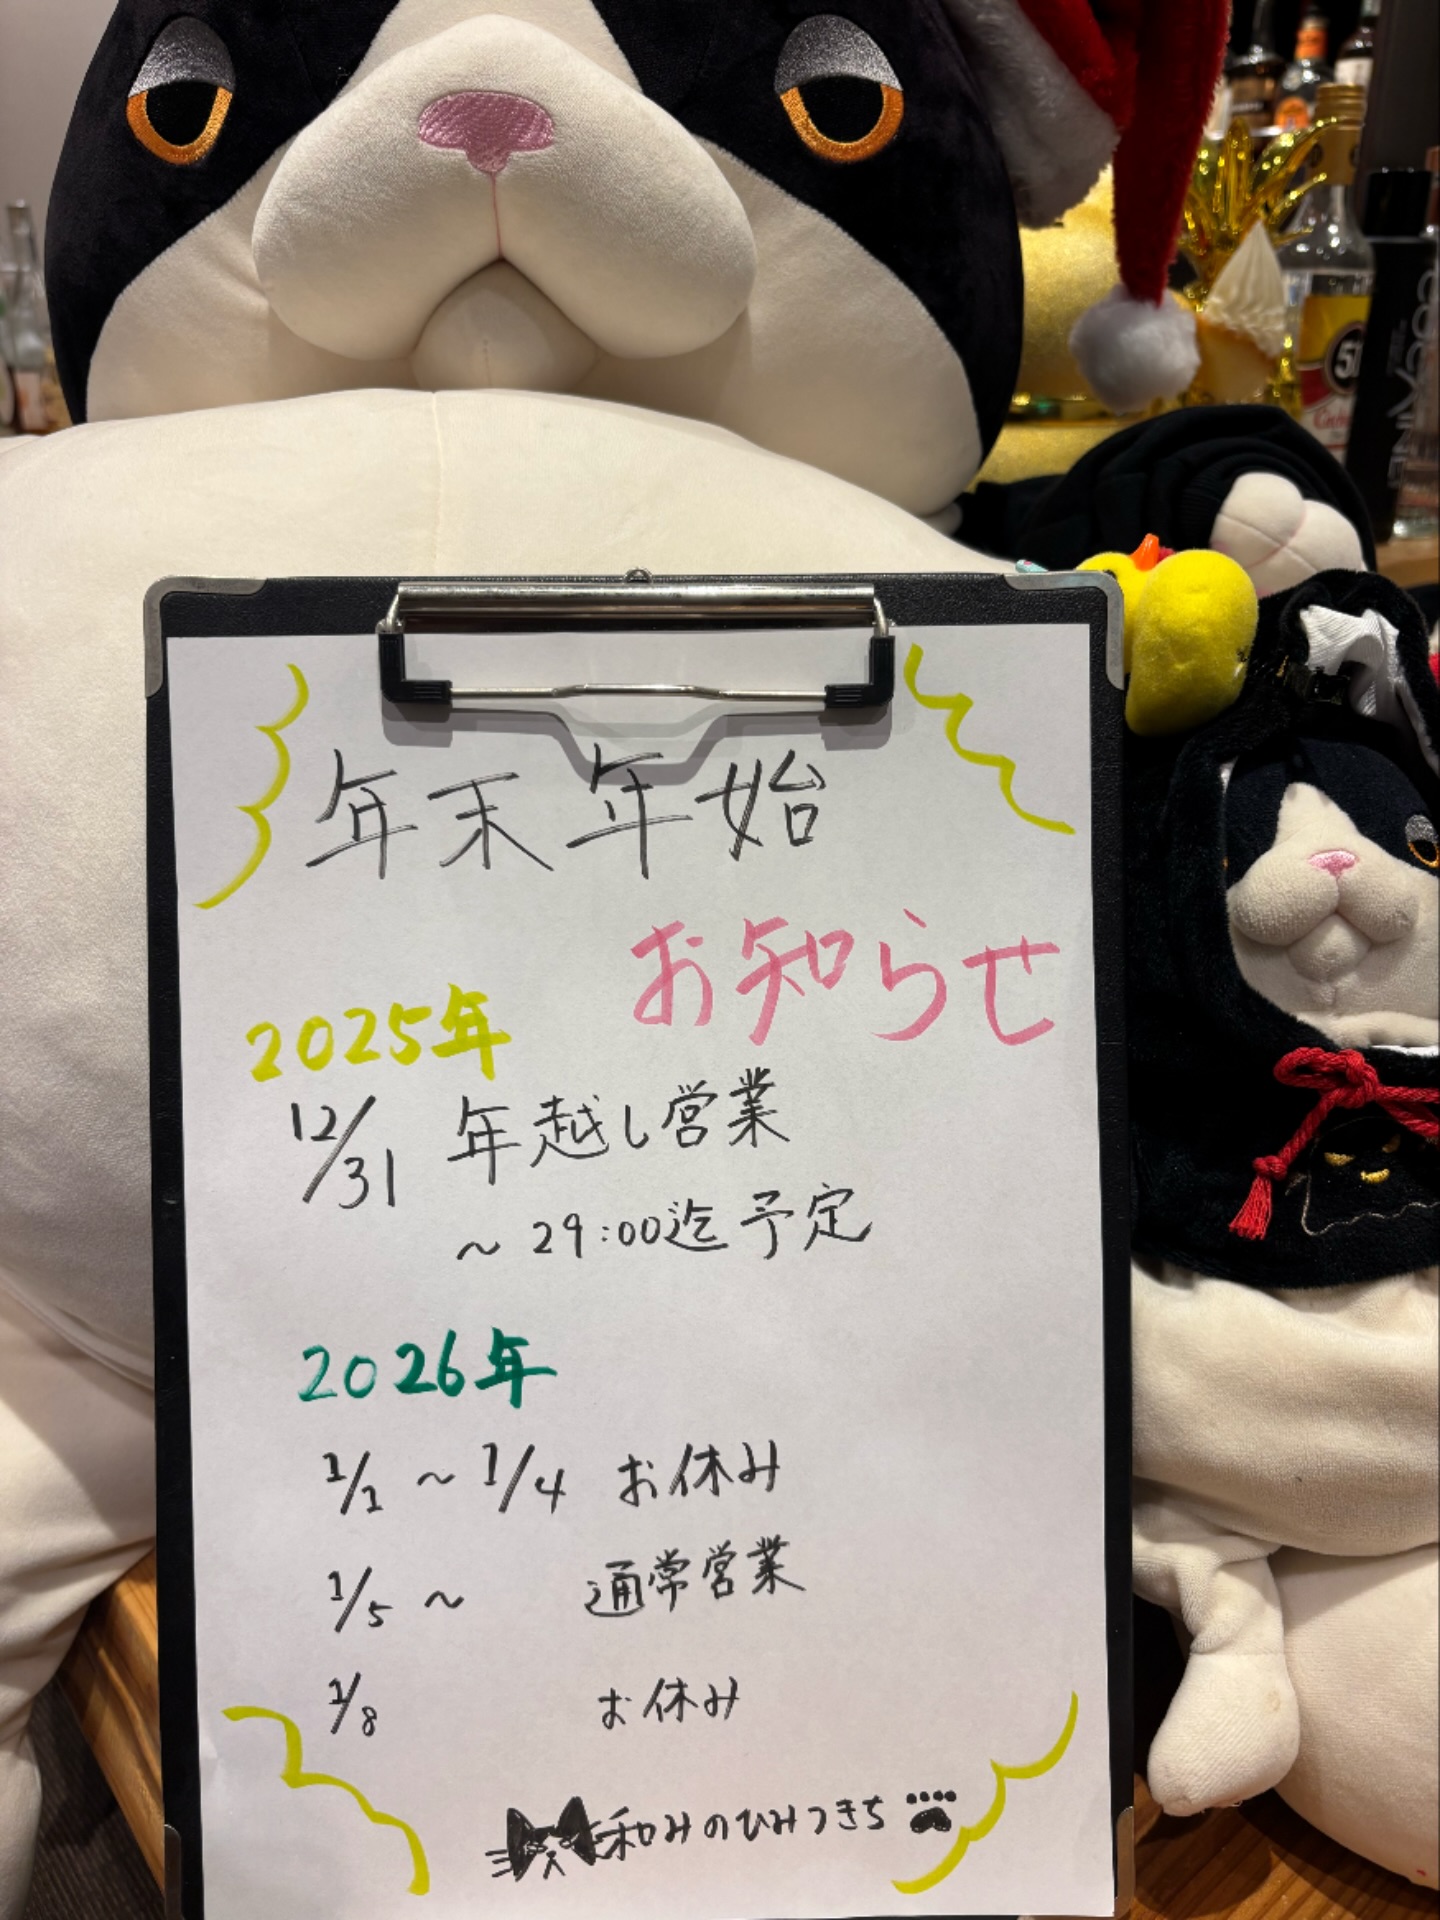 年末年始
お知らせ
2025年
12/31 年越し営業
～29:00迄予定
2026年
1/1～1/4 お休み
1/5～ 通常営業
1/8 お休み
和みのひみつきち
51